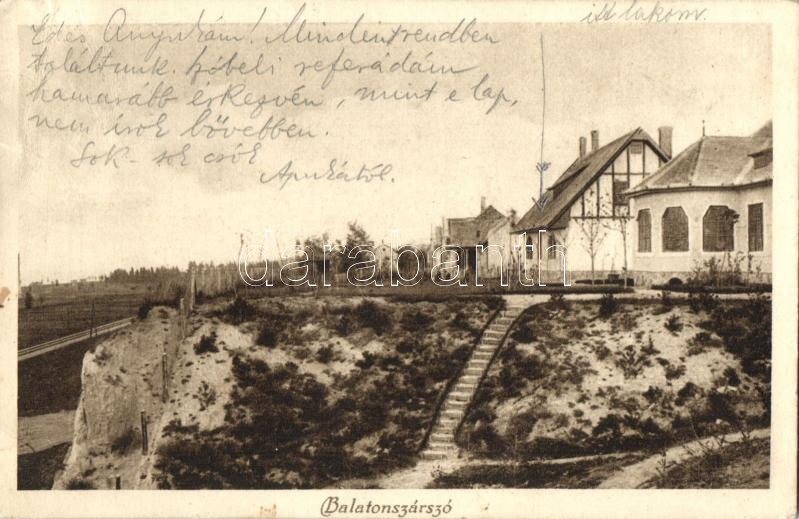 itt lakom.
Édes Anyukám! Mindent rendben
találtunk. Szóbeli referádám
hamarább érkezvén, mint e lap,
nem írok bővebben.
Sok-sok csók
Apukától.
darabanth
Balatonszárszó